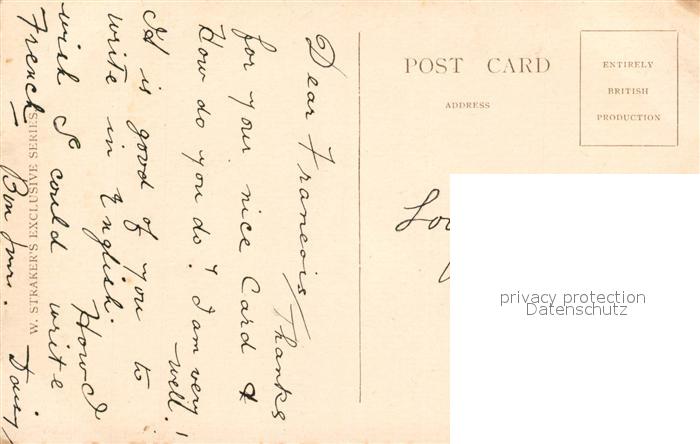 Dear Francois, Thanks
for your nice Card &
How do you do? I am very
well!
It is good of you to
write in English.
How I
wish I could write
French — Bon Jour.
Daisy
W. STRAKER'S EXCLUSIVE SERIES
POST CARD
ADDRESS
ENTIRELY
BRITISH
PRODUCTION
privacy protection
Datenschutz